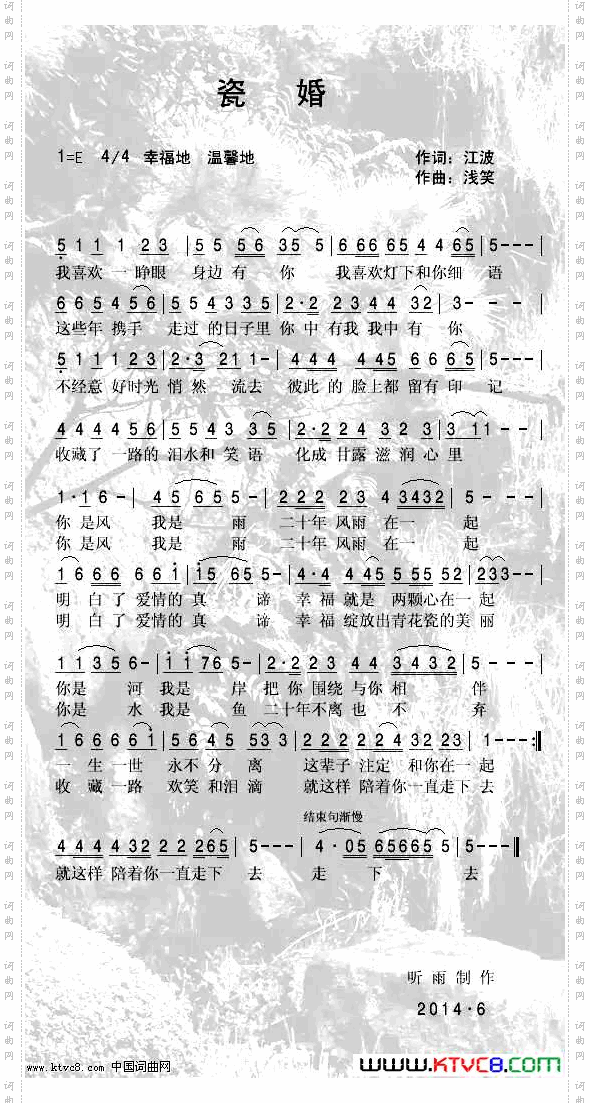 瓷 婚
1=E 4/4 幸福地 温馨地 作词：江波
作曲：浅笑
5 1 1 1 2 3 | 5 5 5 6 3 5 5 | 6 6 6 6 5 4 4 6 5 | 5 - - - |
我喜欢 一 睁眼 身边 有 你 我喜欢灯下和你细 语
6 6 5 4 5 6 | 5 5 4 3 3 5 | 2 · 2 2 3 4 4 3 2 | 3 - - - |
这些年 携手 走过 的日子里 你 中 有我 我中 有 你
5 1 1 1 2 3 | 2 · 3 2 1 1 - | 4 4 4 4 4 5 6 6 6 5 | 5 - - - |
不经意 好时光 悄 然 流去 彼此 的 脸上都 留有 印 记
4 4 4 4 5 6 | 5 5 4 3 3 5 | 2 · 2 2 4 3 2 3 | 3 1 1 - - |
收藏了 一路的 泪水和 笑 语 化成 甘露 滋 润 心 里
1 · 1 6 - | 4 5 6 5 5 - | 2 2 2 2 3 4 3 4 3 2 | 5 - - - |
你 是风 我是 雨 二十年 风雨 在一 起
你 是风 我是 雨 二十年 风雨 在一 起
1 6 6 6 6 6 1 | 1 5 6 5 5 - | 4 · 4 4 4 5 5 5 5 5 2 | 2 3 3 - - |
明 白了 爱情的 真 谛 幸 福 就是 两颗心在一 起
明 白了 爱情的 真 谛 幸 福 绽放出青花瓷的美 丽
1 1 3 5 6 - | 1 1 7 6 5 - | 2 · 2 2 3 3 4 3 2 | 5 - - - |
你是 河 我是 岸 把 你 围绕 与你 相 伴
你是 水 我是 鱼 二十年不离 也 不 弃
1 6 6 6 6 1 | 5 6 4 5 5 3 3 3 | 2 2 2 2 2 4 3 2 2 3 | 1 - - - :‖
一 生 一世 永不 分 离 这辈子 注定 和你在一 起
收 藏 一路 欢笑 和泪 滴 就这样 陪着你一直走下 去
结束句渐慢
4 4 4 4 3 2 2 2 2 6 5 | 5 - - - | 4 · 0 5 6 5 6 6 5 5 | 5 - - - ‖
就这样 陪着你一直走下 去 走 下 去
听 雨 制 作
2014·6
www.ktvc8.com 中国词曲网
www.KTVC8.com
词曲网